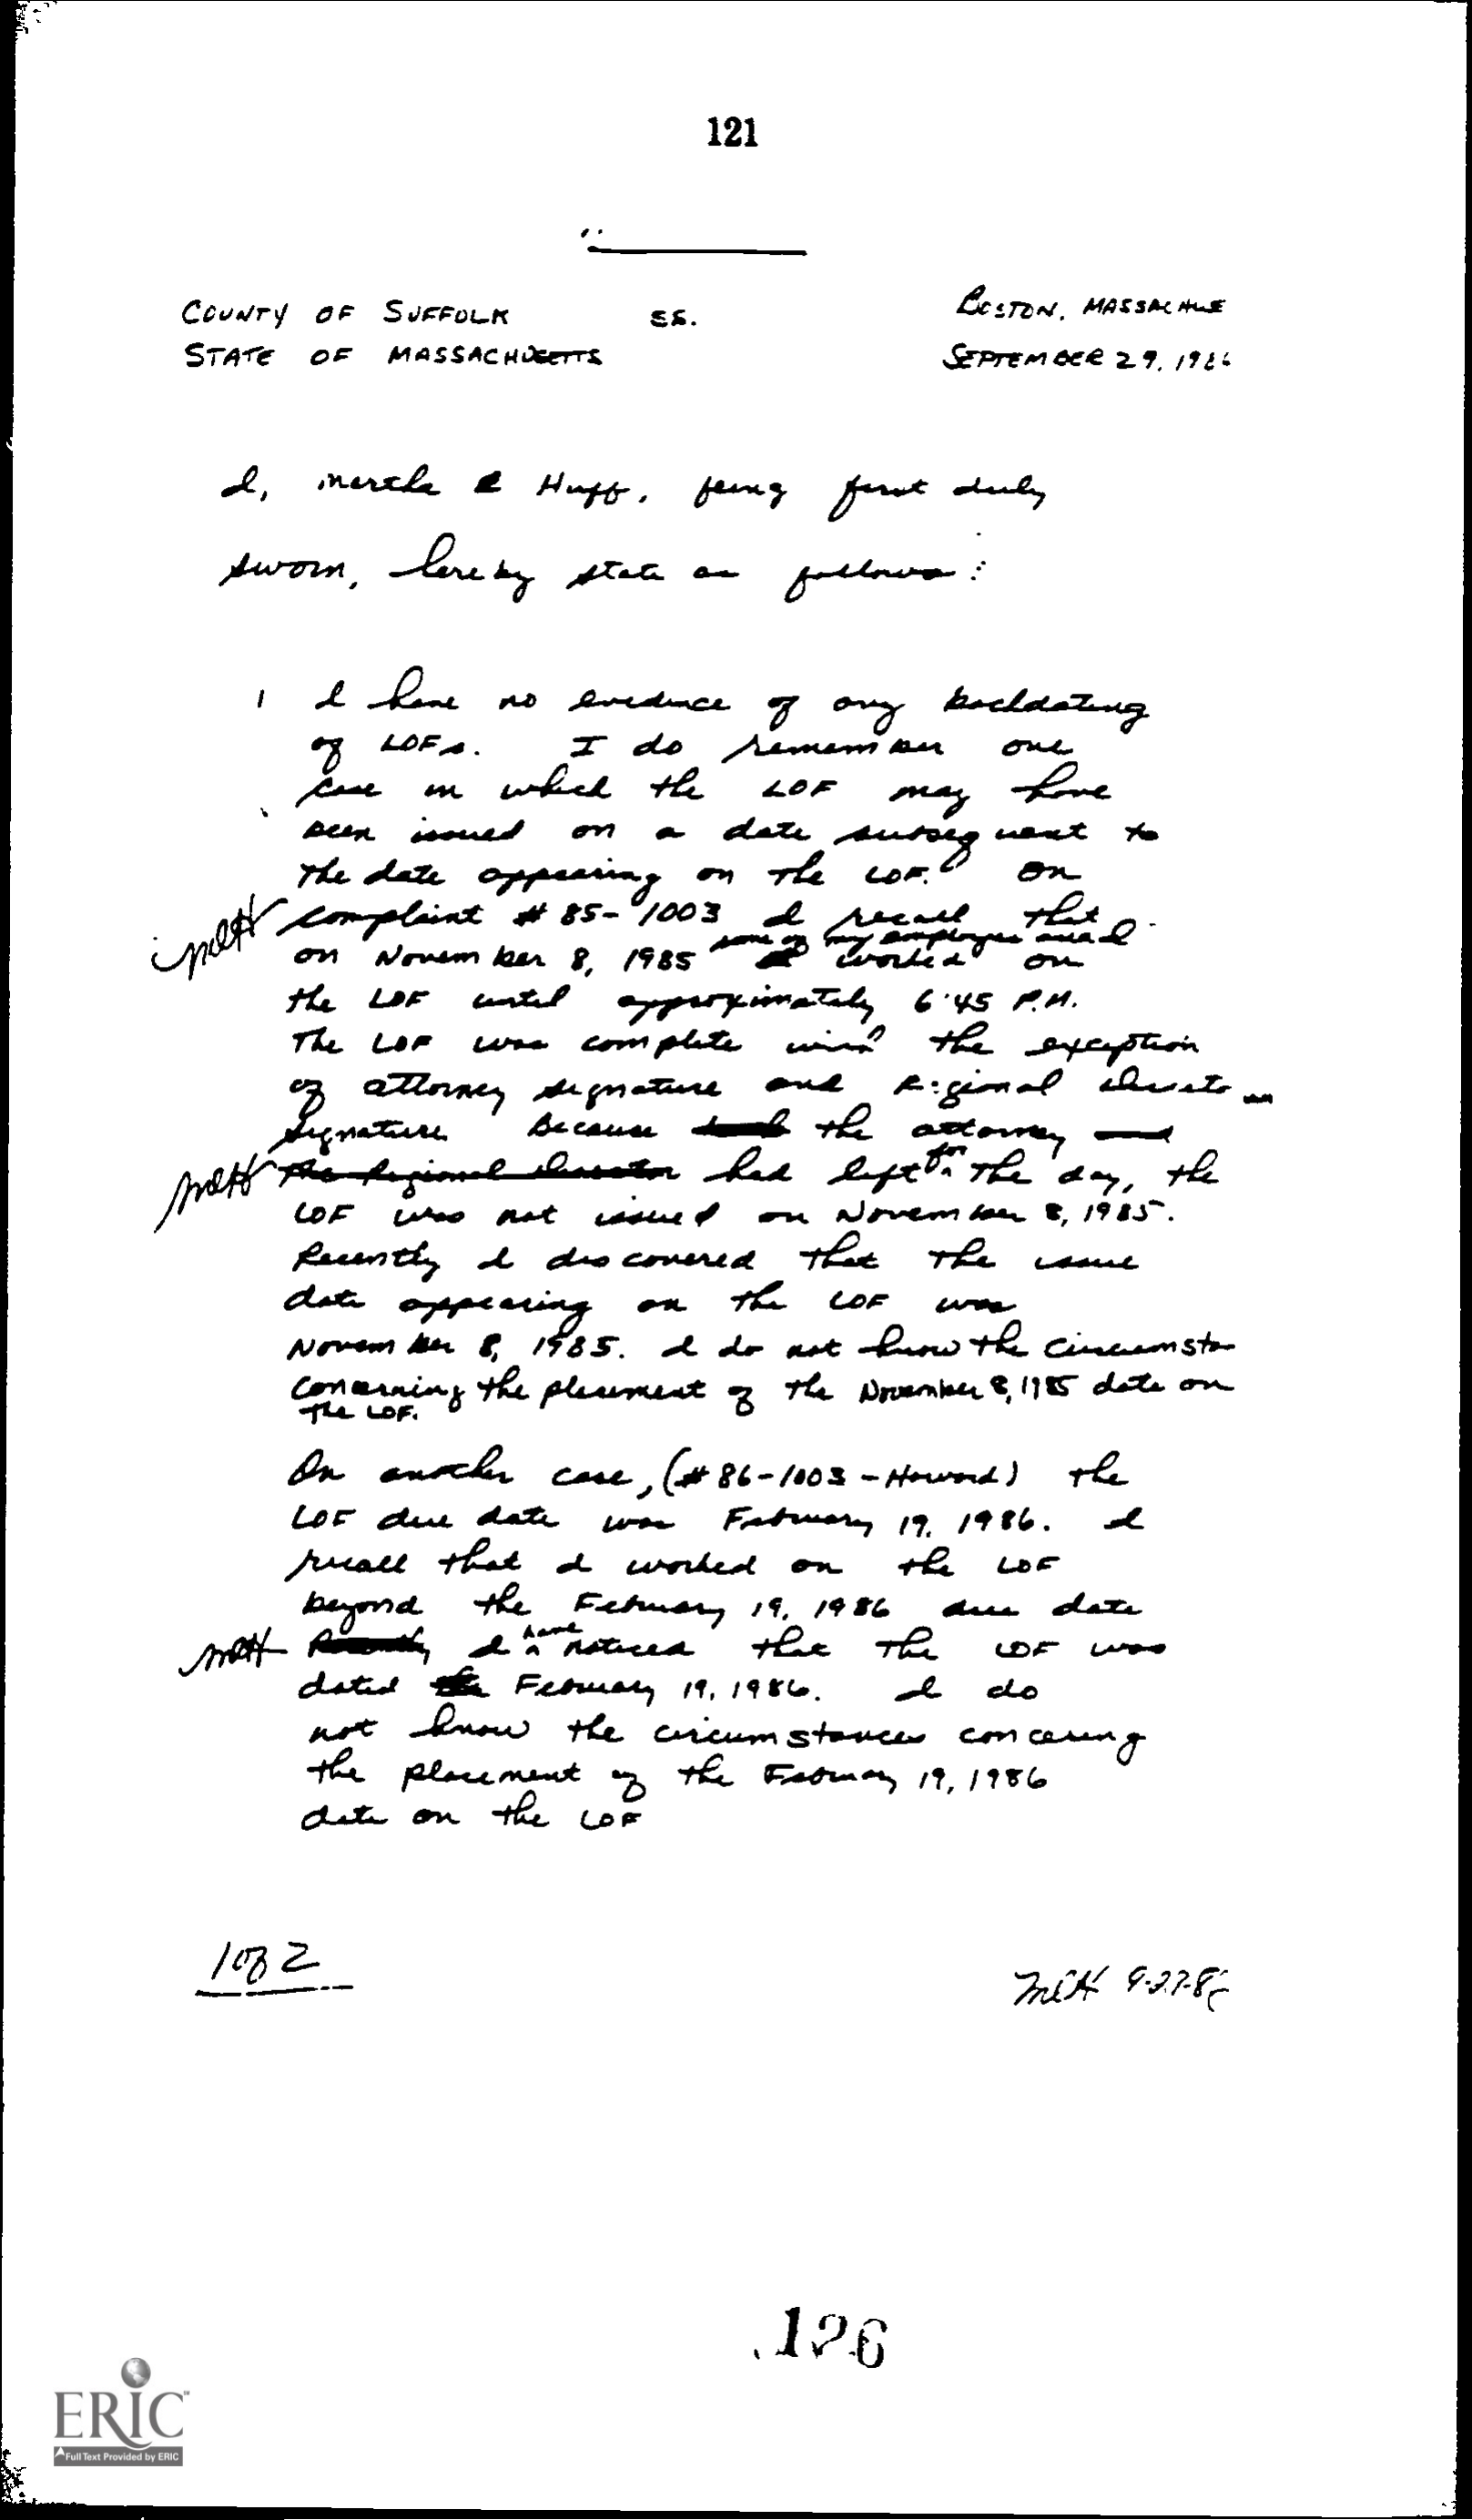 121
COUNTY OF SUFFOLK SS. BOSTON, MASSACHUSE
STATE OF MASSACHUSETTS SEPTEMBER 29, 1986
I, E Huff, being first duly
sworn, hereby state as follows:
1 I have no evidence of any backdating
of LOFs. I do remember one
case in which the LOF may have
been issued on a date subsequent to
the date appearing on the LOF. On
MEH complaint # 85-1003 I recall that
some of my employees and I
on November 8, 1985 worked on
the LOF until approximately 6:45 P.M.
The LOF was complete with the exception
of attorney signature and Regional Directo
signature Because the attorney and
MEH the Regional Director had left for the day, the
LOF was not issued on November 8, 1985.
Recently I discovered that the issue
date appearing on the LOF was
November 8, 1985. I do not know the circumsta
concerning the placement of the November 8, 1985 date on
the LOF.
On another case, (# 86-1003 - Howard) the
LOF due date was February 19, 1986. I
recall that I worked on the LOF
beyond the February 19, 1986 due date
MEH Recently I have noticed that the LOF was
dated the February 19, 1986. I do
not know the circumstances concering
the placement of the February 19, 1986
date on the LOF
1 of 2
MEH
126
ERIC
Full Text Provided by ERIC